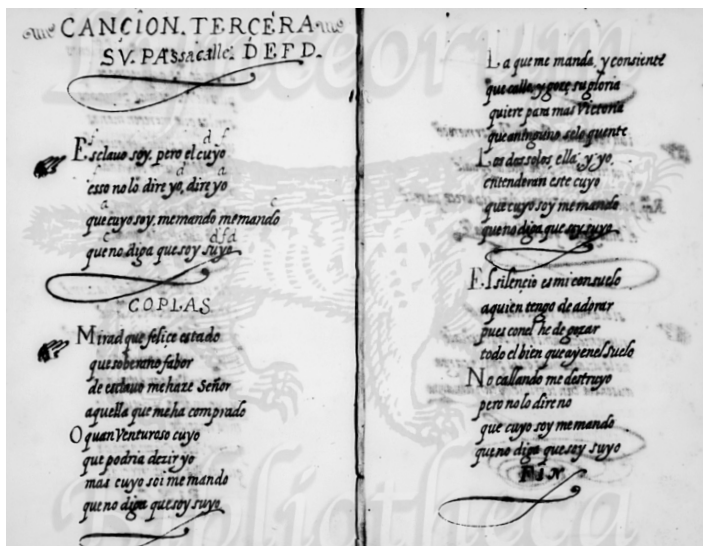 CANÇION. TERCERA
SV. PASsacalle. D.E.F.D.
f d f
Esclauo soy, pero el cuyo
f d a
esso no lo dire yo, dire yo
a c
que cuyo soy, me mando me mando
c d f d
que no diga que soy suyo
COPLAS.
Mirad que felice estado
que soberano fabor
de esclauo me haze Señor
aquella que me ha comprado
O quan Venturoso cuyo
que podria dezir yo
mas cuyo soi me mando
que no diga que soy suyo
La que me manda, y consiente
que calle, y goze su gloria
quiere para mas Victoria
que a ninguno se lo quente
Los dos solos, ella, y yo,
entenderan este cuyo
que cuyo soy me mando
que no diga que soy suyo
El silencio es mi consuelo
a quien tengo de adorar
pues con el he de gozar
todo el bien que ay en el suelo
No callando me destruyo
pero no lo dire no
que cuyo soy me mando
que no diga que soy suyo
FIN.
Lynceorum
Bibliotheca